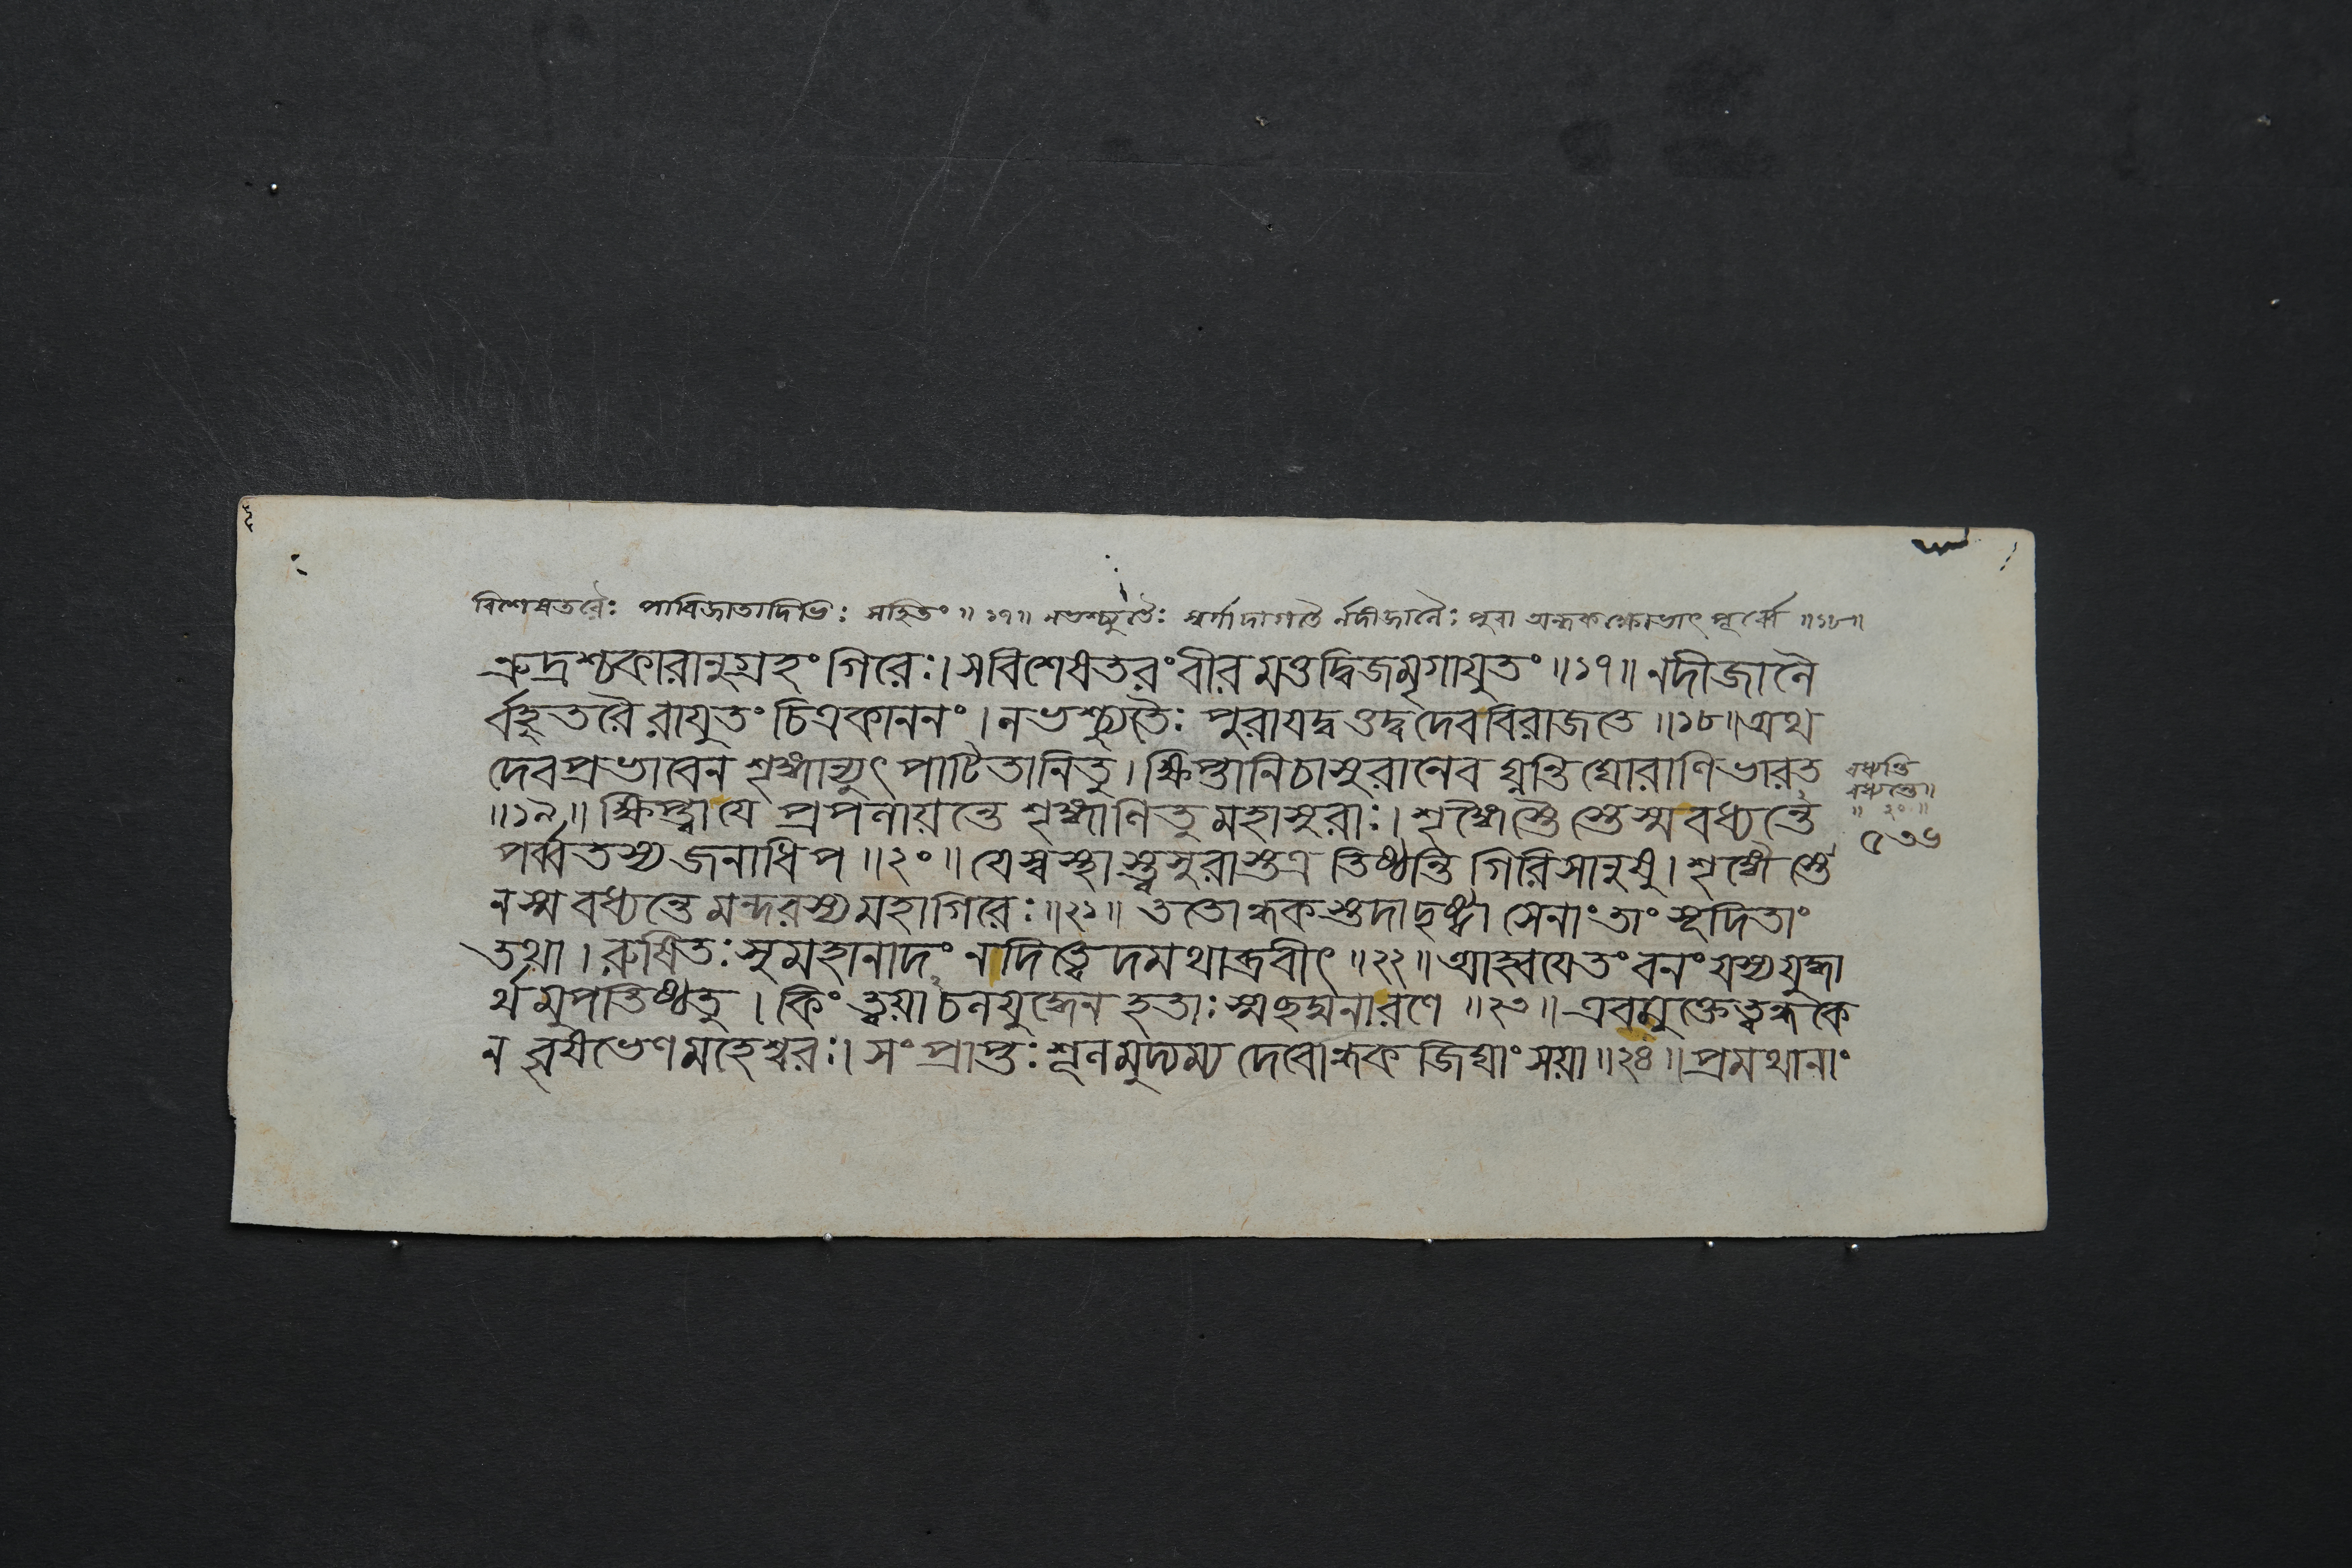 বিশেষতরৈঃ পারিজাতাদিভিঃ সহিতং ॥ ১৭॥ নভশ্চ্যুতৈঃ স্বর্গাদাগতৈ র্নদীজালৈঃ পুরা অন্ধকক্ষোভাৎ পূর্ব্বে ॥১৮॥
ত্রুদ্রশ্চকারানুগ্রহং গিরেঃ। সবিশেষতরং বীর মত্তদ্বিজমৃগাযুতং ॥১৭॥ নদীজালৈ
র্বহুতরৈ রাযুতং চিত্রকাননং। নভশ্চ্যুতৈঃ পুরাযদ্ব ত্তদ্বদেববিরাজতে ॥১৮॥ অথ
দেবপ্রভাবেন শৃঙ্গান্যুৎ পাটিতানিতু। ক্ষিপ্তানিচাসুরানেব ঘ্নন্তি ঘোরাণিভারত
॥১৯॥ ক্ষিপ্ত্বাযে প্রপলায়ন্তে শৃঙ্গাণিতু মহাসুরাঃ। শৃঙ্গৈস্তৈ স্তেস্ম বধ্যন্তে
পর্ব্বতস্যজনাধিপ ॥২০॥ যেস্বস্থা স্ত্বসুরাস্তত্র তিষ্ঠন্তি গিরিসানুষু। শৃঙ্গৈ স্তে
নস্ম বধ্যন্তে মন্দরস্যমহাগিরেঃ॥২১॥ ততোন্ধকস্তদাদৃষ্ট্বা সেনাং তাং সূদিতাং
তথা। রুষিতঃ সুমহানাদং নাদিত্বেদমথাব্রবীৎ ॥২২॥ আহ্বয়েতং বনং যস্যযুদ্ধা
র্থমুপতিষ্ঠতু। কিং ত্বয়াচলযুদ্ধেন হতাঃ স্মছদ্মনারণে ॥২৩॥ এবমুক্তেত্বন্ধকে
ন বৃষভেণমহেশ্বরঃ। সংপ্রাপ্তঃ শূলমুদ্যম্য দেবোন্ধক জিঘাং সয়া॥২৪॥ প্রমথানাং
বধ্যন্তি
বধ্যন্তে॥
॥ ২০ ॥
৫৩৬